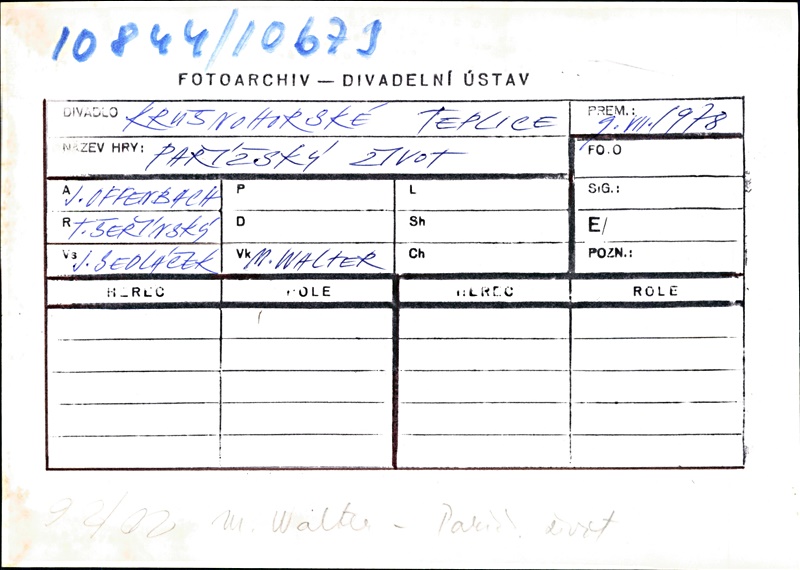 10844/10679
FOTOARCHIV — DIVADELNÍ ÚSTAV
DIVADLO KRUŠNOHORSKÉ TEPLICE PREM.: 9. VII. 1978
NÁZEV HRY: PAŘÍŽSKÝ ŽIVOT FOTO
A J. OFFENBACH P L SIG.:
R T. ŠEŘÍNSKÝ D Sh E/
Vs J. SEDLÁČEK Vk M. WALTER Ch POZN.:
HEREC ROLE HEREC ROLE
M. Walter - Paříž. život